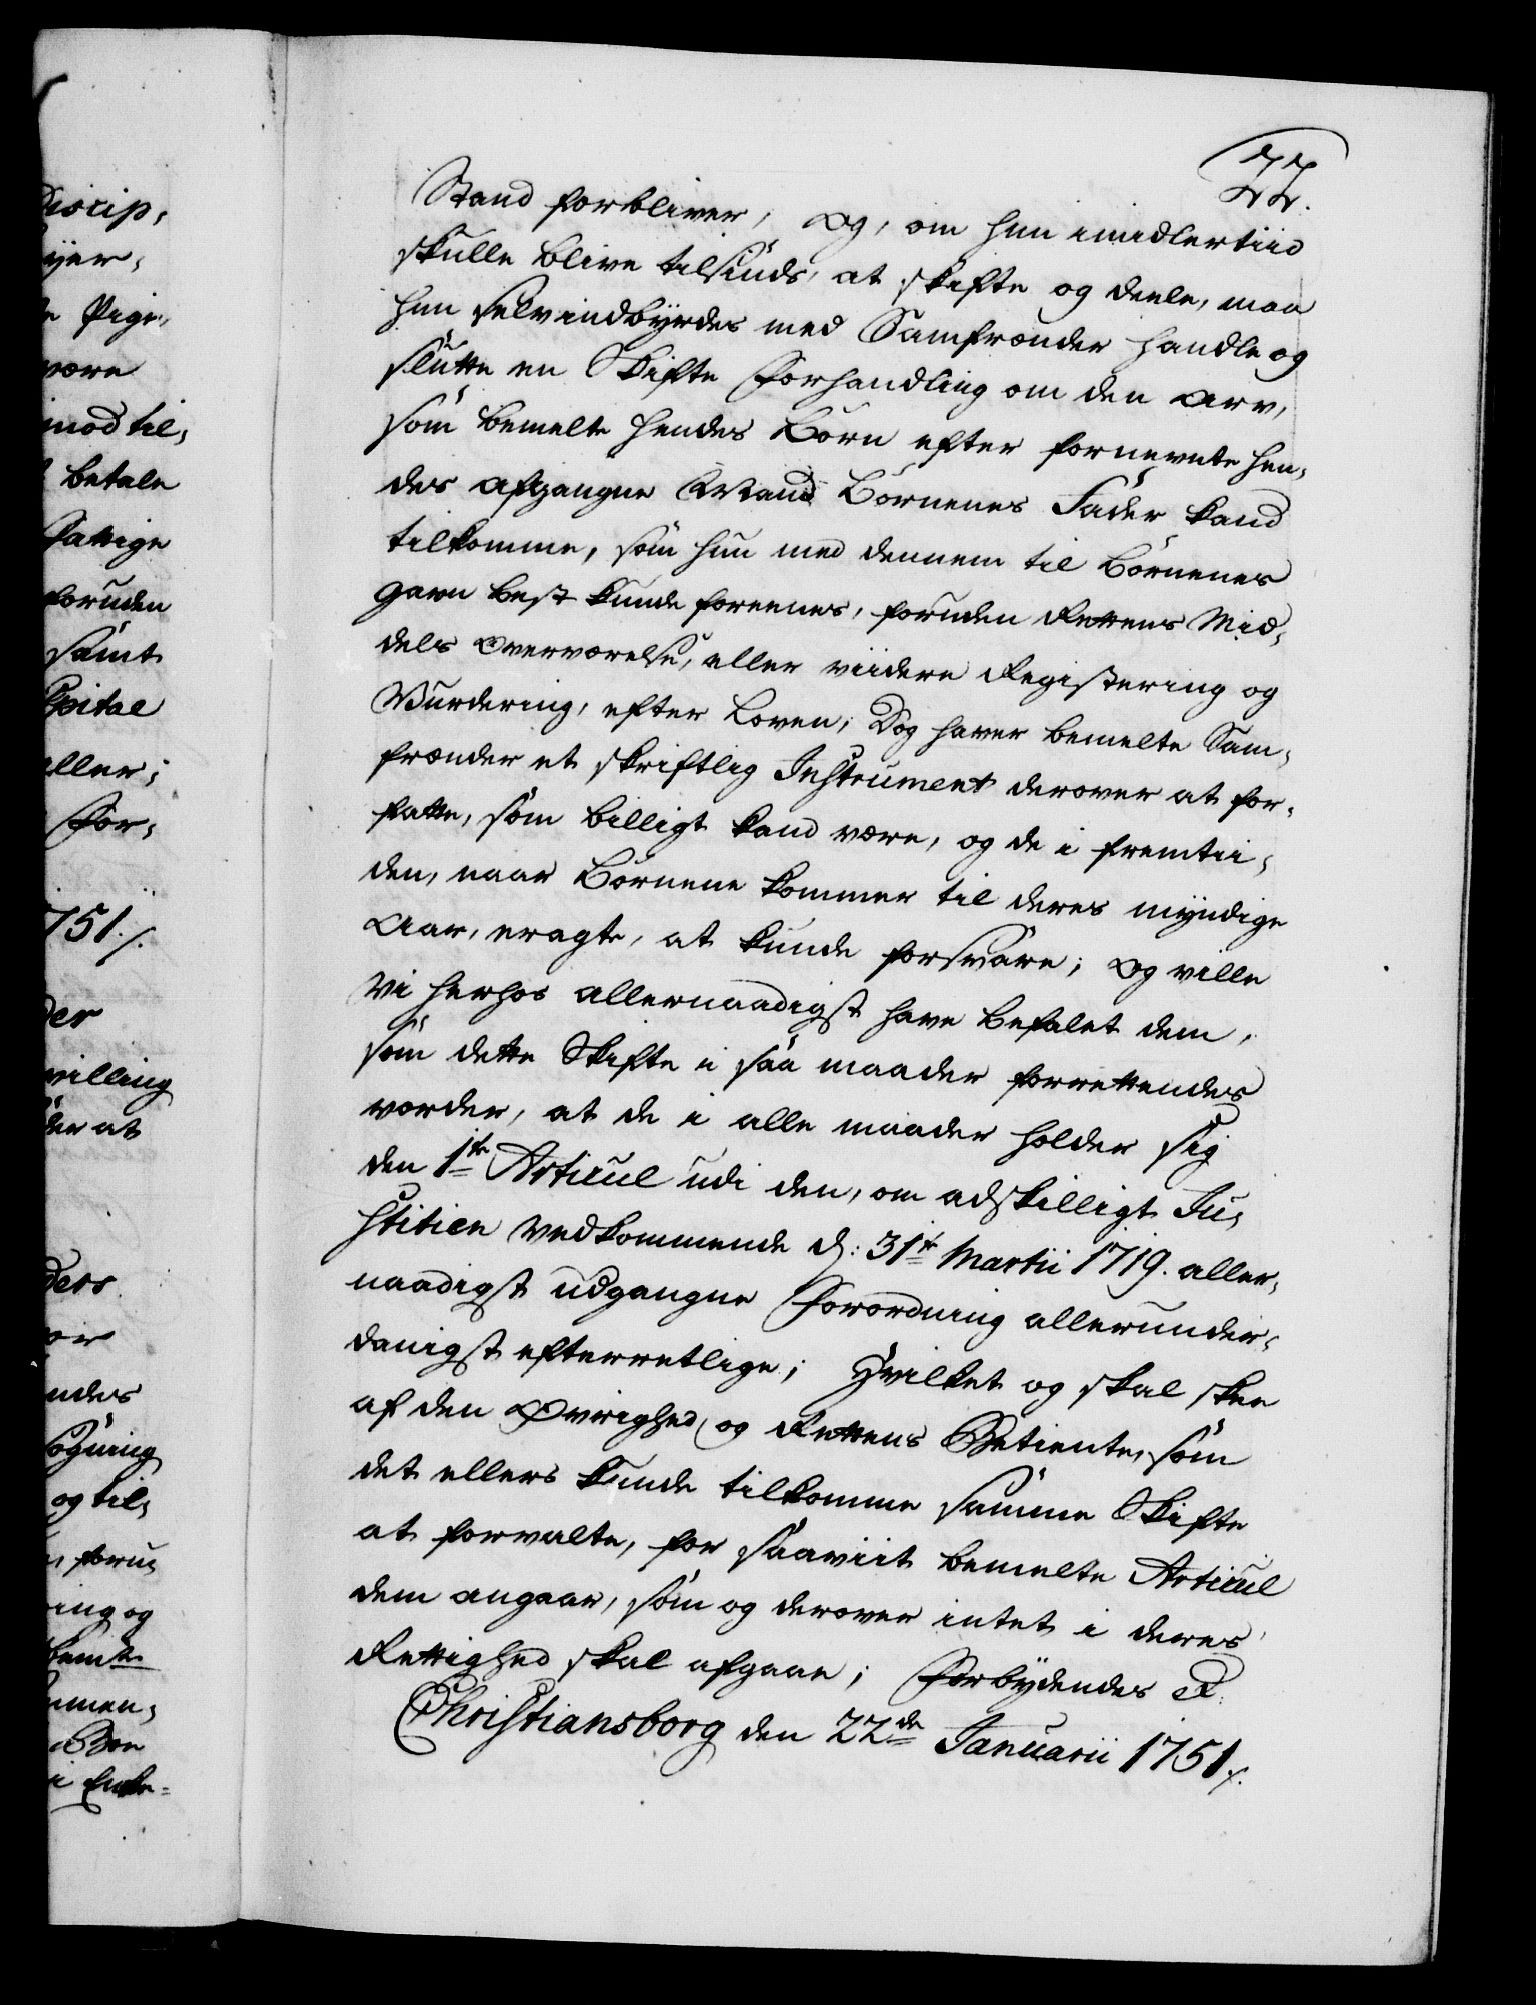 22.
Stand forbliver, Og, om hun imidlertiid
skulle blive tilsinds, at skifte og deele, maa
hun selvindbyrdes med Samfrænder handle og
slutte en Skifte Forhandling om den Arv,
som bemelte hendes Börn efter fornevnte hen-
des afgangne Mand Börnenes Fader kand
tilkomme, som hun med dennem til Börnenes
Gavn best kunde foreenes, foruden Rettens Mid-
dels Overværelse, eller viidere Registering og
Vurdering, efter Loven; Dog haver bemelte Sam-
frænder et skriftlig Instrument derover at for-
fatte, som billigt kand være, og de i fremtii-
den, naar Börnene kommer til deres myndige
Aar, eragte, at kunde forsvare; Og ville
Vi herhos allernaadigst have befalet dem,
som dette Skifte i saa maader forrettendes
vorder, at de i alle maader holder sig
den 1ste Articul udi den, om adskilligt Ju-
stitien vedkommende d: 31te Martii 1719. aller-
naadigst udgangne Forordning allerunder-
danigst efterretlige; Hvilket og skal skee
af den Øvrighed og Rettens Betiente, som
det ellers kunde tilkomme samme Skifte
at forvalte, for saaviit bemelte Articul
dem angaar, som og derover intet i deres
Rettighed skal afgaae; Forbydendes &:
Christiansborg den 22de Januarii 1751./.
Pige,
være
imod til-
betale
fattige
foruden
samt
eller;
For-
1751./.
der at
og til-
ing og